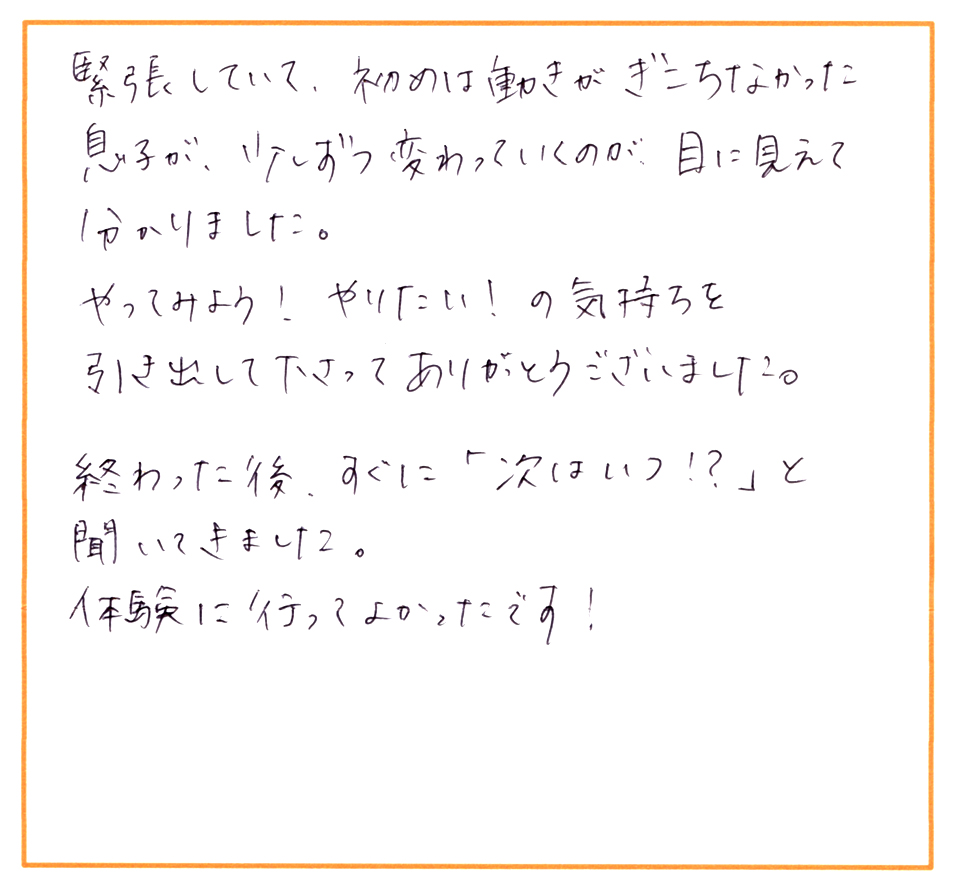 緊張していて、初めは動きがぎこちなかった
息子が、少しずつ変わっていくのが、目に見えて
分かりました。
やってみよう！やりたい！の気持ちを
引き出して下さってありがとうございました。
終わった後、すぐに「次はいつ！？」と
聞いてきました。
体験に行ってよかったです！